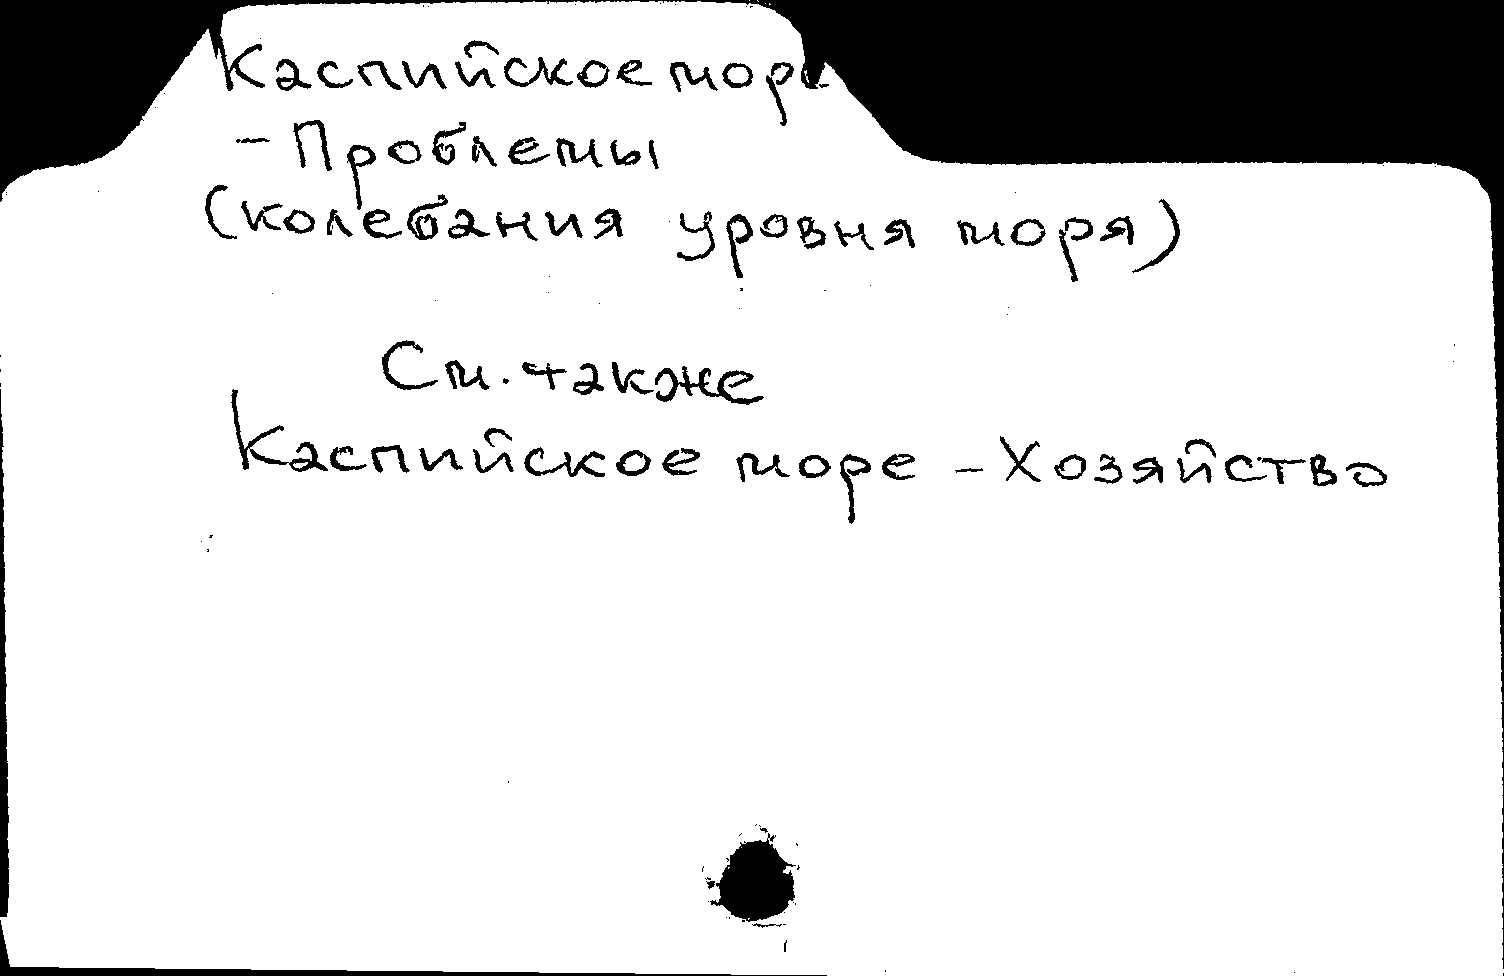 Каспийское море
- Проблемы
(колебания уровня моря)
См. также
Каспийское море - Хозяйство